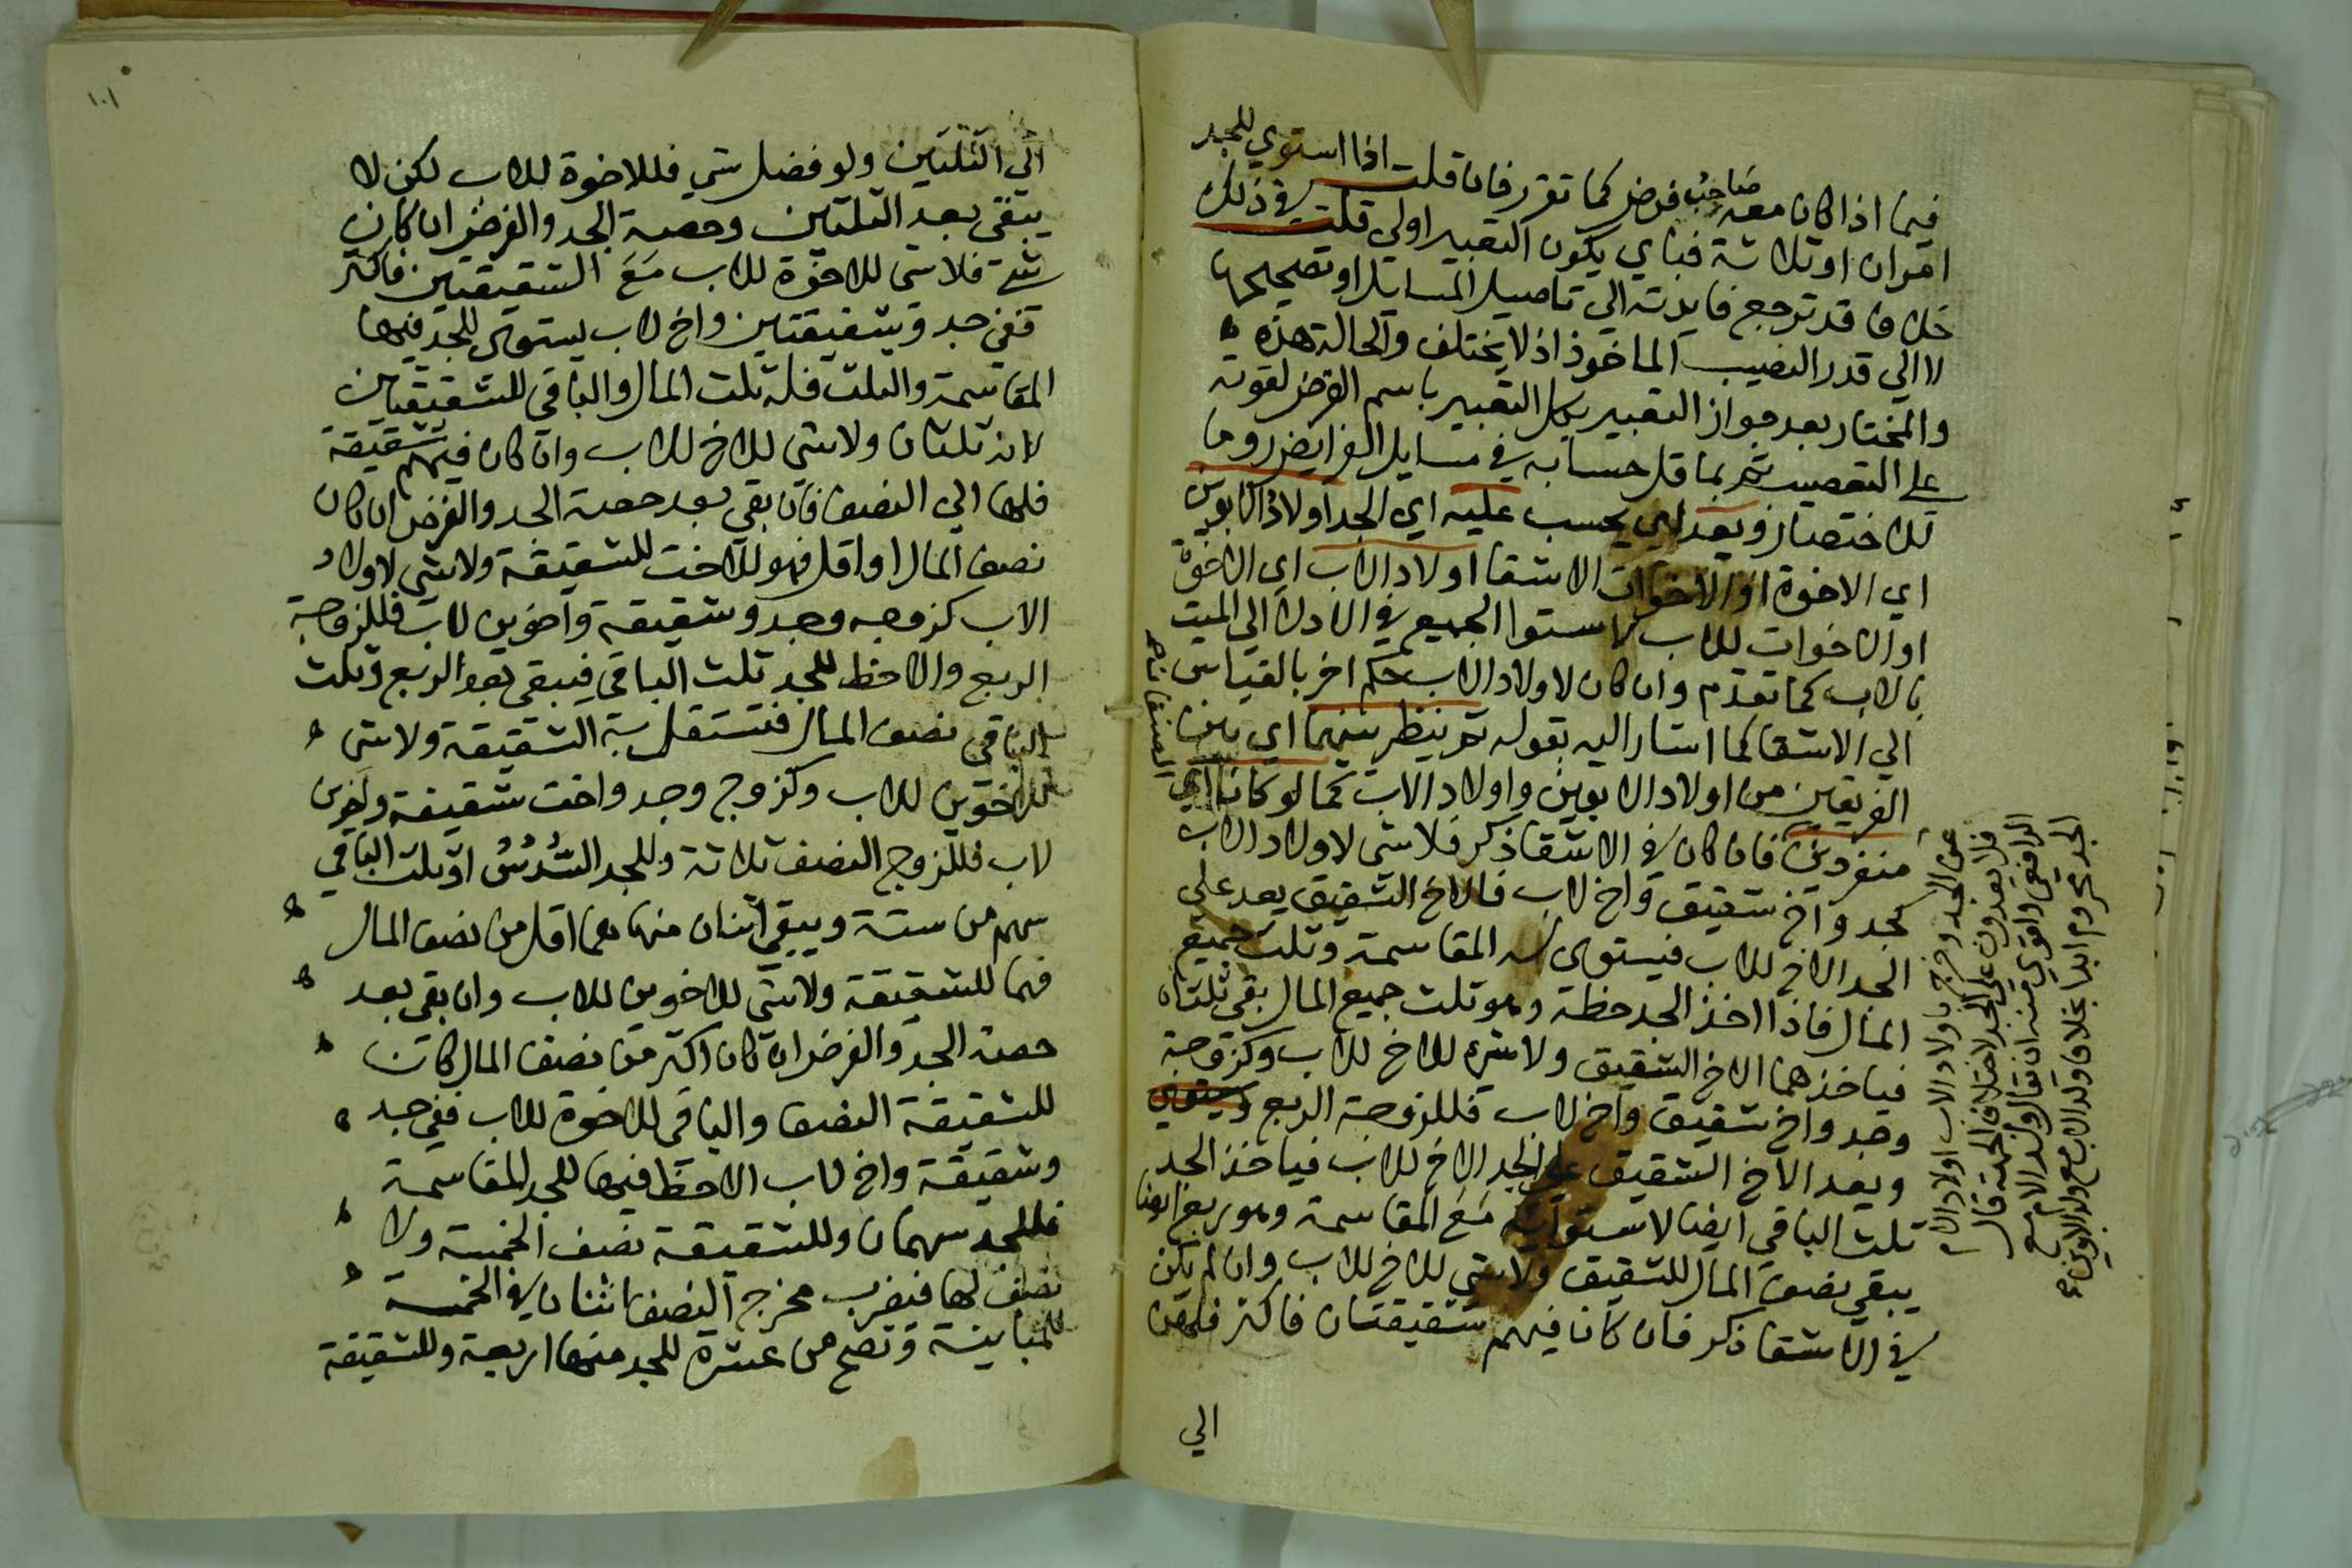 فيما اذا كان معه صاحب فرض كما تقرر فان قلت اذا استوي للجد
امران او ثلاثة فباي يكون التعبير اولي قلت في ذلك
خلاف قد ترجع فايدته الي تاصيل المسايل او تصحيحها
لا الي قدر النصيب الماخوذ اذ لا يختلف والحالة هذه
والمختار بعد جواز التعبير بكل التعبير باسم الفرض لقوته
علي التعصيب ثم بما قل حسابه في مسايل الفرايض روما
للاختصار ويعد اي يحسب عليه اي الجد اولاد الابوين
اي الاخوة او الاخوات الاشقا اولاد الاب اي الاخوة
او الاخوات للاب لاستوا الجميع في الادلا الي الميت
بالاب كما تقدم وان كان لاولاد الاب حكم اخر بالقياس
الي الاشقا كما اشار اليه بقوله ثم ينظر بينهما اي بين
الفريقين من اولاد الابوين واولاد الاب كما لو كانا اي
منفردين فان كان في الاشقا ذكر فلا شي لاولاد الاب
كجد واخ شقيق واخ لاب فالاخ الشقيق يعد علي
الجد الاخ للاب فيستوي له المقاسمة وثلث جميع
المال فاذا اخذ الجد حظه وهو ثلث جميع المال بقي ثلثاه
فياخذهما الاخ الشقيق ولا شي للاخ للاب وكزوجة
وجد واخ شقيق واخ لاب فللزوجة الربع ويستوي
ويعد الاخ الشقيق علي الجد الاخ للاب فياخذ الجد
ثلث الباقي ايضا لاستوايه مع المقاسمة وهو ربع ايضا
يبقي نصف المال للشقيق ولا شي للاخ للاب وان لم يكن
في الاشقا ذكر فان كان فيهم شقيقتان فاكثر فلهن
الي
الجد محروم ابدا بخلاف ولد الاب مع ولد الابوين
١٠١
الي الثلثين ولو فضل شي فللاخوة للاب لكن لا
يبقي بعد الثلثين وحصة الجد والفرض ان كان
شي فلا شي للاخوة للاب مع الشقيقتين فاكثر
ففي جد وشقيقتين واخ لاب يستوي للجد فيها
المقاسمة والثلث فله ثلث المال والباقي للشقيقتين
لانه ثلثان ولا شي للاخ للاب وان كان فيهم شقيقة
فلها الي النصف فان بقي بعد حصة الجد والفرض ان كان
نصف المال او اقل فهو للاخت للشقيقة ولا شي لاولاد
الاب كزوجه وجد وشقيقة واخوين لاب فللزوجة
الربع والاحظ للجد ثلث الباقي فيبقي بعد الربع وثلث
الباقي نصف المال فتستقل به الشقيقة ولا شي
للاخوين للاب وكزوج وجد واخت شقيقة واخوين
لاب فللزوج النصف ثلاثة وللجد السُّدُسُ او ثلث الباقي
سهم من ستة ويبقي اثنان منها هما اقل من نصف المال
فهما للشقيقة ولا شي للاخوين للاب وان بقي بعد
حصة الجد والفرض ان كان اكثر من نصف المال كان
للشقيقة النصف والباقي للاخوة للاب ففي جد
وشقيقة واخ لاب الاحظ فيها للجد المقاسمة
فللجد سهمان وللشقيقة نصف الخمسة ولا
نصف لها فيضرب مخرج النصف اثنان في الخمسة
للمباينة وتصح من عشرة للجد منها اربعة وللشقيقة